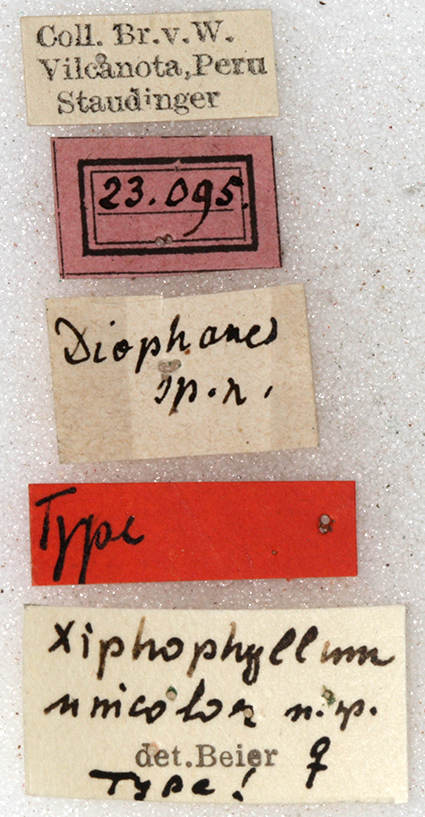 Coll. Br. v. W.
Vilcanota, Peru
Staudinger
23.095.
Diophanes
sp. n.
Type
Xiphophyllum
unicolor n. sp.
det. Beier ♀
Type!